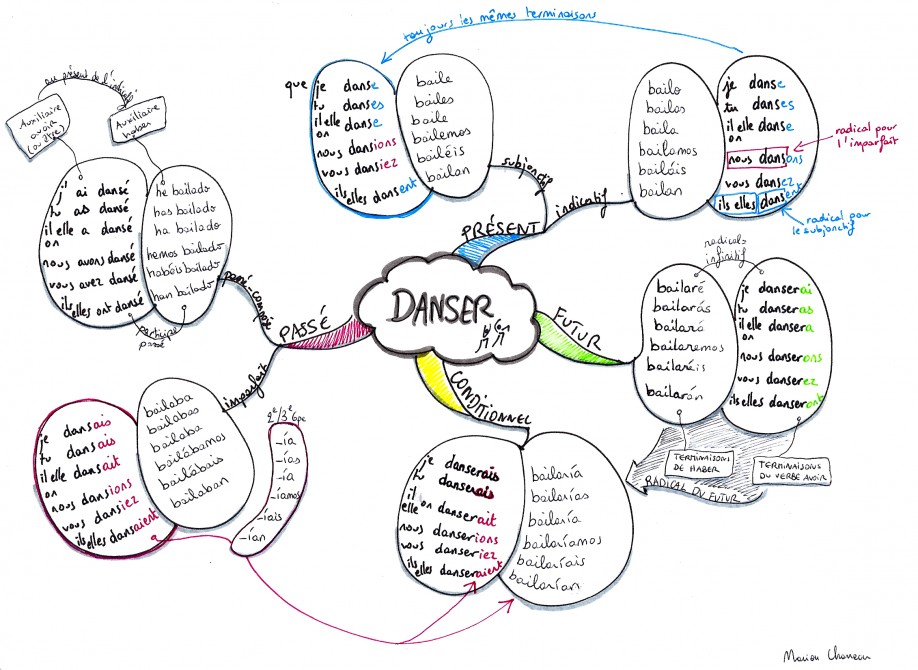 toujours les mêmes terminaisons
au présent de l'indicatif
Auxiliaire
avoir
(ou être)
Auxiliaire
haber
j' ai dansé
tu as dansé
il elle a dansé
on
nous avons dansé
vous avez dansé
ils elles ont dansé
he bailado
has bailado
ha bailado
hemos bailado
habéis bailado
han bailado
participe
passé
passé-composé
que je danse
tu danses
il elle danse
on
nous dansions
vous dansiez
ils elles dansent
baile
bailes
baile
bailemos
bailéis
bailan
subjonctif
PRÉSENT
indicatif
bailo
bailas
baila
bailamos
bailáis
bailan
je danse
tu danses
il elle danse
on
nous dansons
vous dansez
ils elles dansent
radical pour
l'imparfait
radical pour
le subjonctif
DANSER
PASSÉ
imparfait
FUTUR
CONDITIONNEL
radical=
infinitif
bailaré
bailarás
bailará
bailaremos
bailaréis
bailarán
je danserai
tu danseras
il elle dansera
on
nous danserons
vous danserez
ils elles danseront
TERMINAISONS
DE HABER
TERMINAISONS
DU VERBE AVOIR
RADICAL DU FUTUR
je dansais
tu dansais
il elle dansait
on
nous dansions
vous dansiez
ils elles dansaient
bailaba
bailabas
bailaba
bailábamos
bailábais
bailaban
2e/3e gpe
-ía
-ías
-ía
-íamos
-íais
-ían
je danserais
tu danserais
il
elle on danserait
nous danserions
vous danseriez
ils elles danseraient
bailaría
bailarías
bailaría
bailaríamos
bailaríais
bailarían
Marion